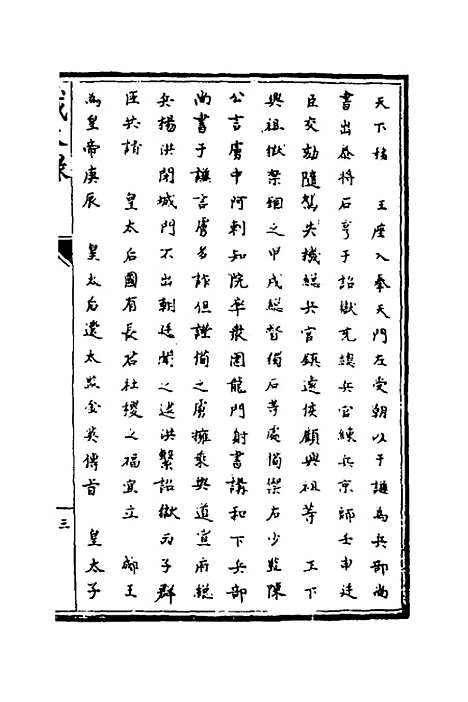 天下移　王座入奉天門左受朝以于謙為兵部尚
書出叅將石亨于詔獄充總兵官練兵京師壬申廷
臣交劾隨駕失機總兵官鎮遠侯顧興祖等　王下
興祖獄架錮之甲戌總督獨石等處備禦右少監陳
公言虜中阿剌知院率衆圍龍門射書講和下兵部
尚書于謙言虜多詐但謹備之虜擁乘輿道宣府總
兵楊洪閉城門不出朝廷聞之逮洪繫詔獄丙子群
臣共請　皇太后國有長君社稷之福宜立　郕王
為皇帝庚辰　皇太后遣太監金英傳旨　皇太子
三